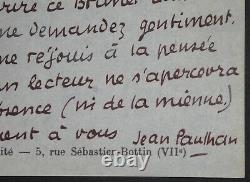 ce Brunet
me demandez gentiment.
me réjouis à la pensée
un lecteur ne s'apercevra
érence (ni de la mienne)
ment à vous Jean Paulhan
ité — 5, rue Sébastien-Bottin (VIIe)